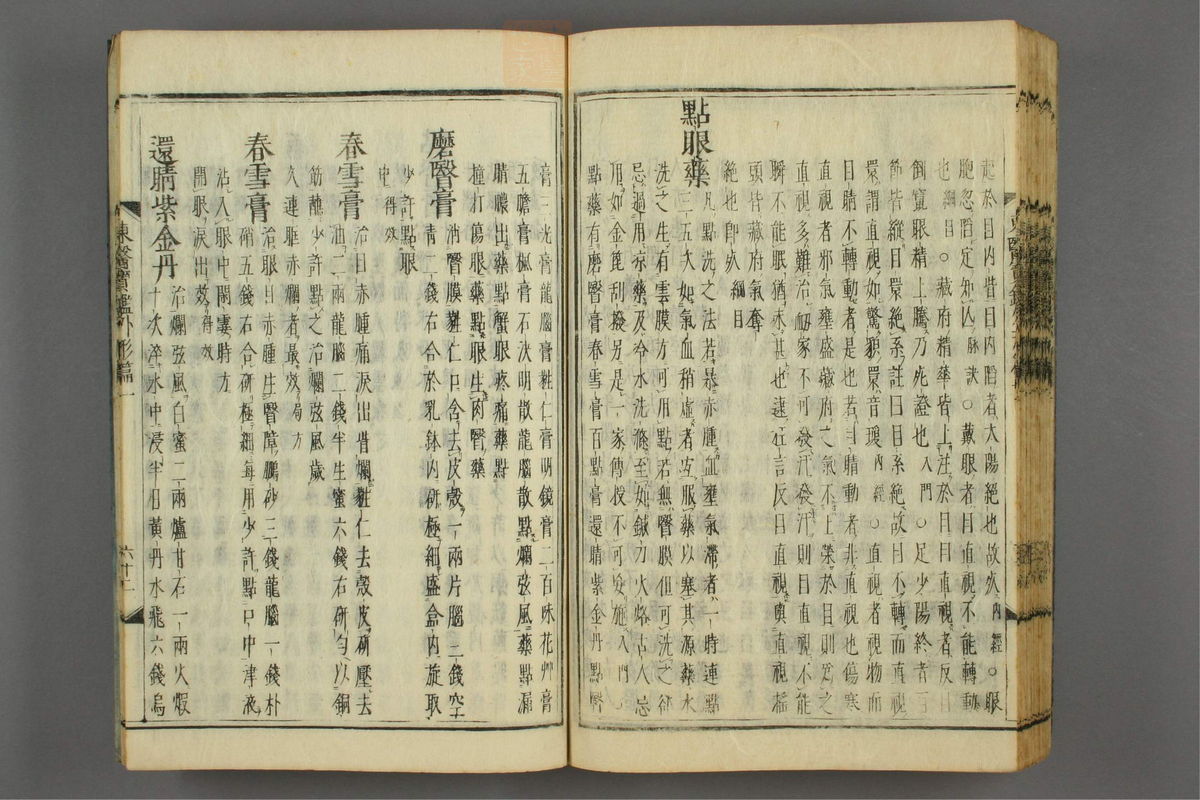 起於目內眥目內陷者太陽絕也故死內經○眼
胞忽陷定知亾脉訣○戴眼者目直視不能轉動
也綱目○藏府精華皆上注於目目直視者反目
倒竄眼精上騰乃死證也入門○足少陽終者百
節皆縱目睘絕系註曰目系絕故目不轉而直視
睘謂直視如驚貌睘音瓊內經○直視者視物而
目睛不轉動者是也若目睛動者非直視也傷寒
直視者邪氣壅盛藏府之氣不上榮於目則爲之
直視多難治衂家不可發汗發汗則目直視不能
瞬不能眠猶未甚也逮狂言反目直視與直視搖
頭皆藏府氣奪
絕也卽死綱目
點眼藥
凡點洗之法若暴赤腫血壅氣滯者一時連點
三五次如氣血稍虛者宜服藥以塞其源藥水
洗之生有雲膜方可用點若無瞖膜但可洗之卻
忌過用凉藥及冷水洗滌至如鍼刀火烙古人忌
用如金篦刮撥另是一家傳授不可妄施入門
點藥有磨瞖膏春雪膏百點膏還睛紫金丹點瞖
膏三光膏龍腦膏甤仁膏明鏡膏二百味花艸膏
五膽膏楓膏石決明散龍腦散點爛弦風藥點漏
睛膿出藥點蟹眼疼痛藥點
撞打傷眼藥點眼生肉瞖藥
磨瞖膏
治瞖膜甤仁口含去皮殼一兩片腦三錢空
靑二錢右合於乳鉢內硏極細盛盒內旋取
少許點眼
中得效
春雪膏
治目赤腫痛淚出眥爛甤仁去殼皮硏壓去
油二兩龍腦二錢半生蜜六錢右硏勻以銅
筯蘸少許點之治爛弦風歲
久連眶赤爛者最效局方
春雪膏
治眼目赤腫生瞖障鵬砂三錢龍腦一錢朴
硝五錢右合硏極細每用少許點口中津液
沾入眼中閉霎時方
開眼淚出效得效
還睛紫金丹
治爛弦風白蜜二兩爐甘石一兩火煅
十次淬水中浸半日黃丹水飛六錢烏
東醫寶鑑外形篇一
六十二